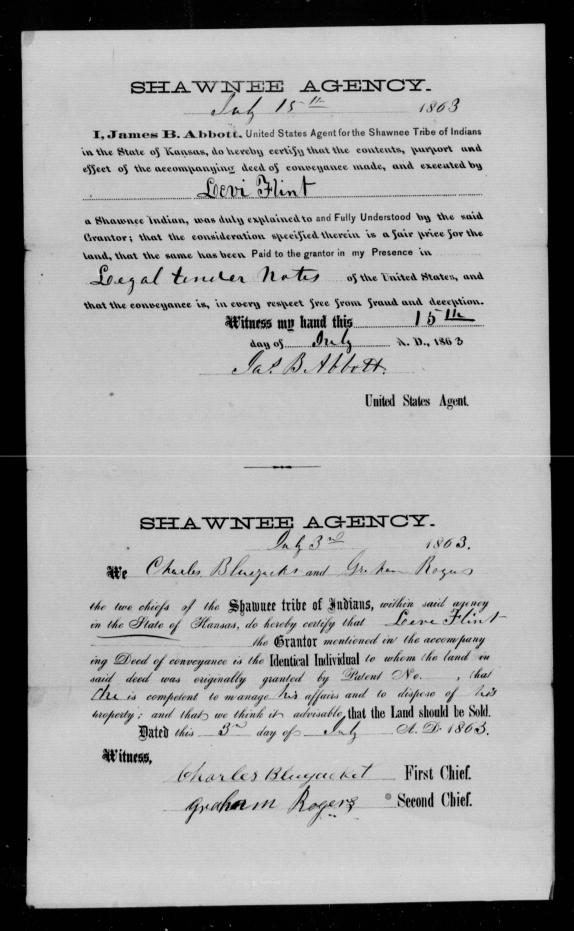 SHAWNEE AGENCY.
July 15th 1863
I, James B. Abbott, United States Agent for the Shawnee Tribe of Indians
in the State of Kansas, do hereby certify that the contents, purport and
effect of the accompanying deed of conveyance made, and executed by
Levi Flint
a Shawnee Indian, was duly explained to and Fully Understood by the said
Grantor; that the consideration specified therein is a fair price for the
land, that the same has been Paid to the grantor in my Presence in
Legal tender Notes of the United States, and
that the conveyance is, in every respect free from fraud and deception.
Witness my hand this 15th
day of July A. D., 1863
Jas. B. Abbott.
United States Agent.
SHAWNEE AGENCY.
July 3rd 1863.
We Charles Bluejacket and Graham Rogers
the two chiefs of the Shawnee tribe of Indians, within said agency
in the State of Kansas, do hereby certify that Levi Flint
the Grantor mentioned in the accompany
ing Deed of conveyance is the Identical Individual to whom the land in
said deed was originally granted by Patent No. , that
he is competent to manage his affairs and to dispose of his
property; and that we think it advisable, that the Land should be Sold.
Dated this 3rd day of July A. D. 1863.
Witness,
Charles Bluejacket First Chief.
Graham Rogers Second Chief.